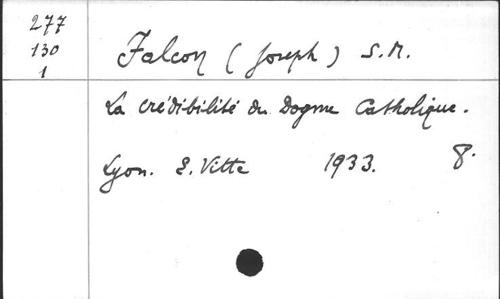 277
130
1
Falcon (Joseph) S.M.
La crédibilité du Dogme Catholique.
Lyon. E. Vitte 1933. 8.